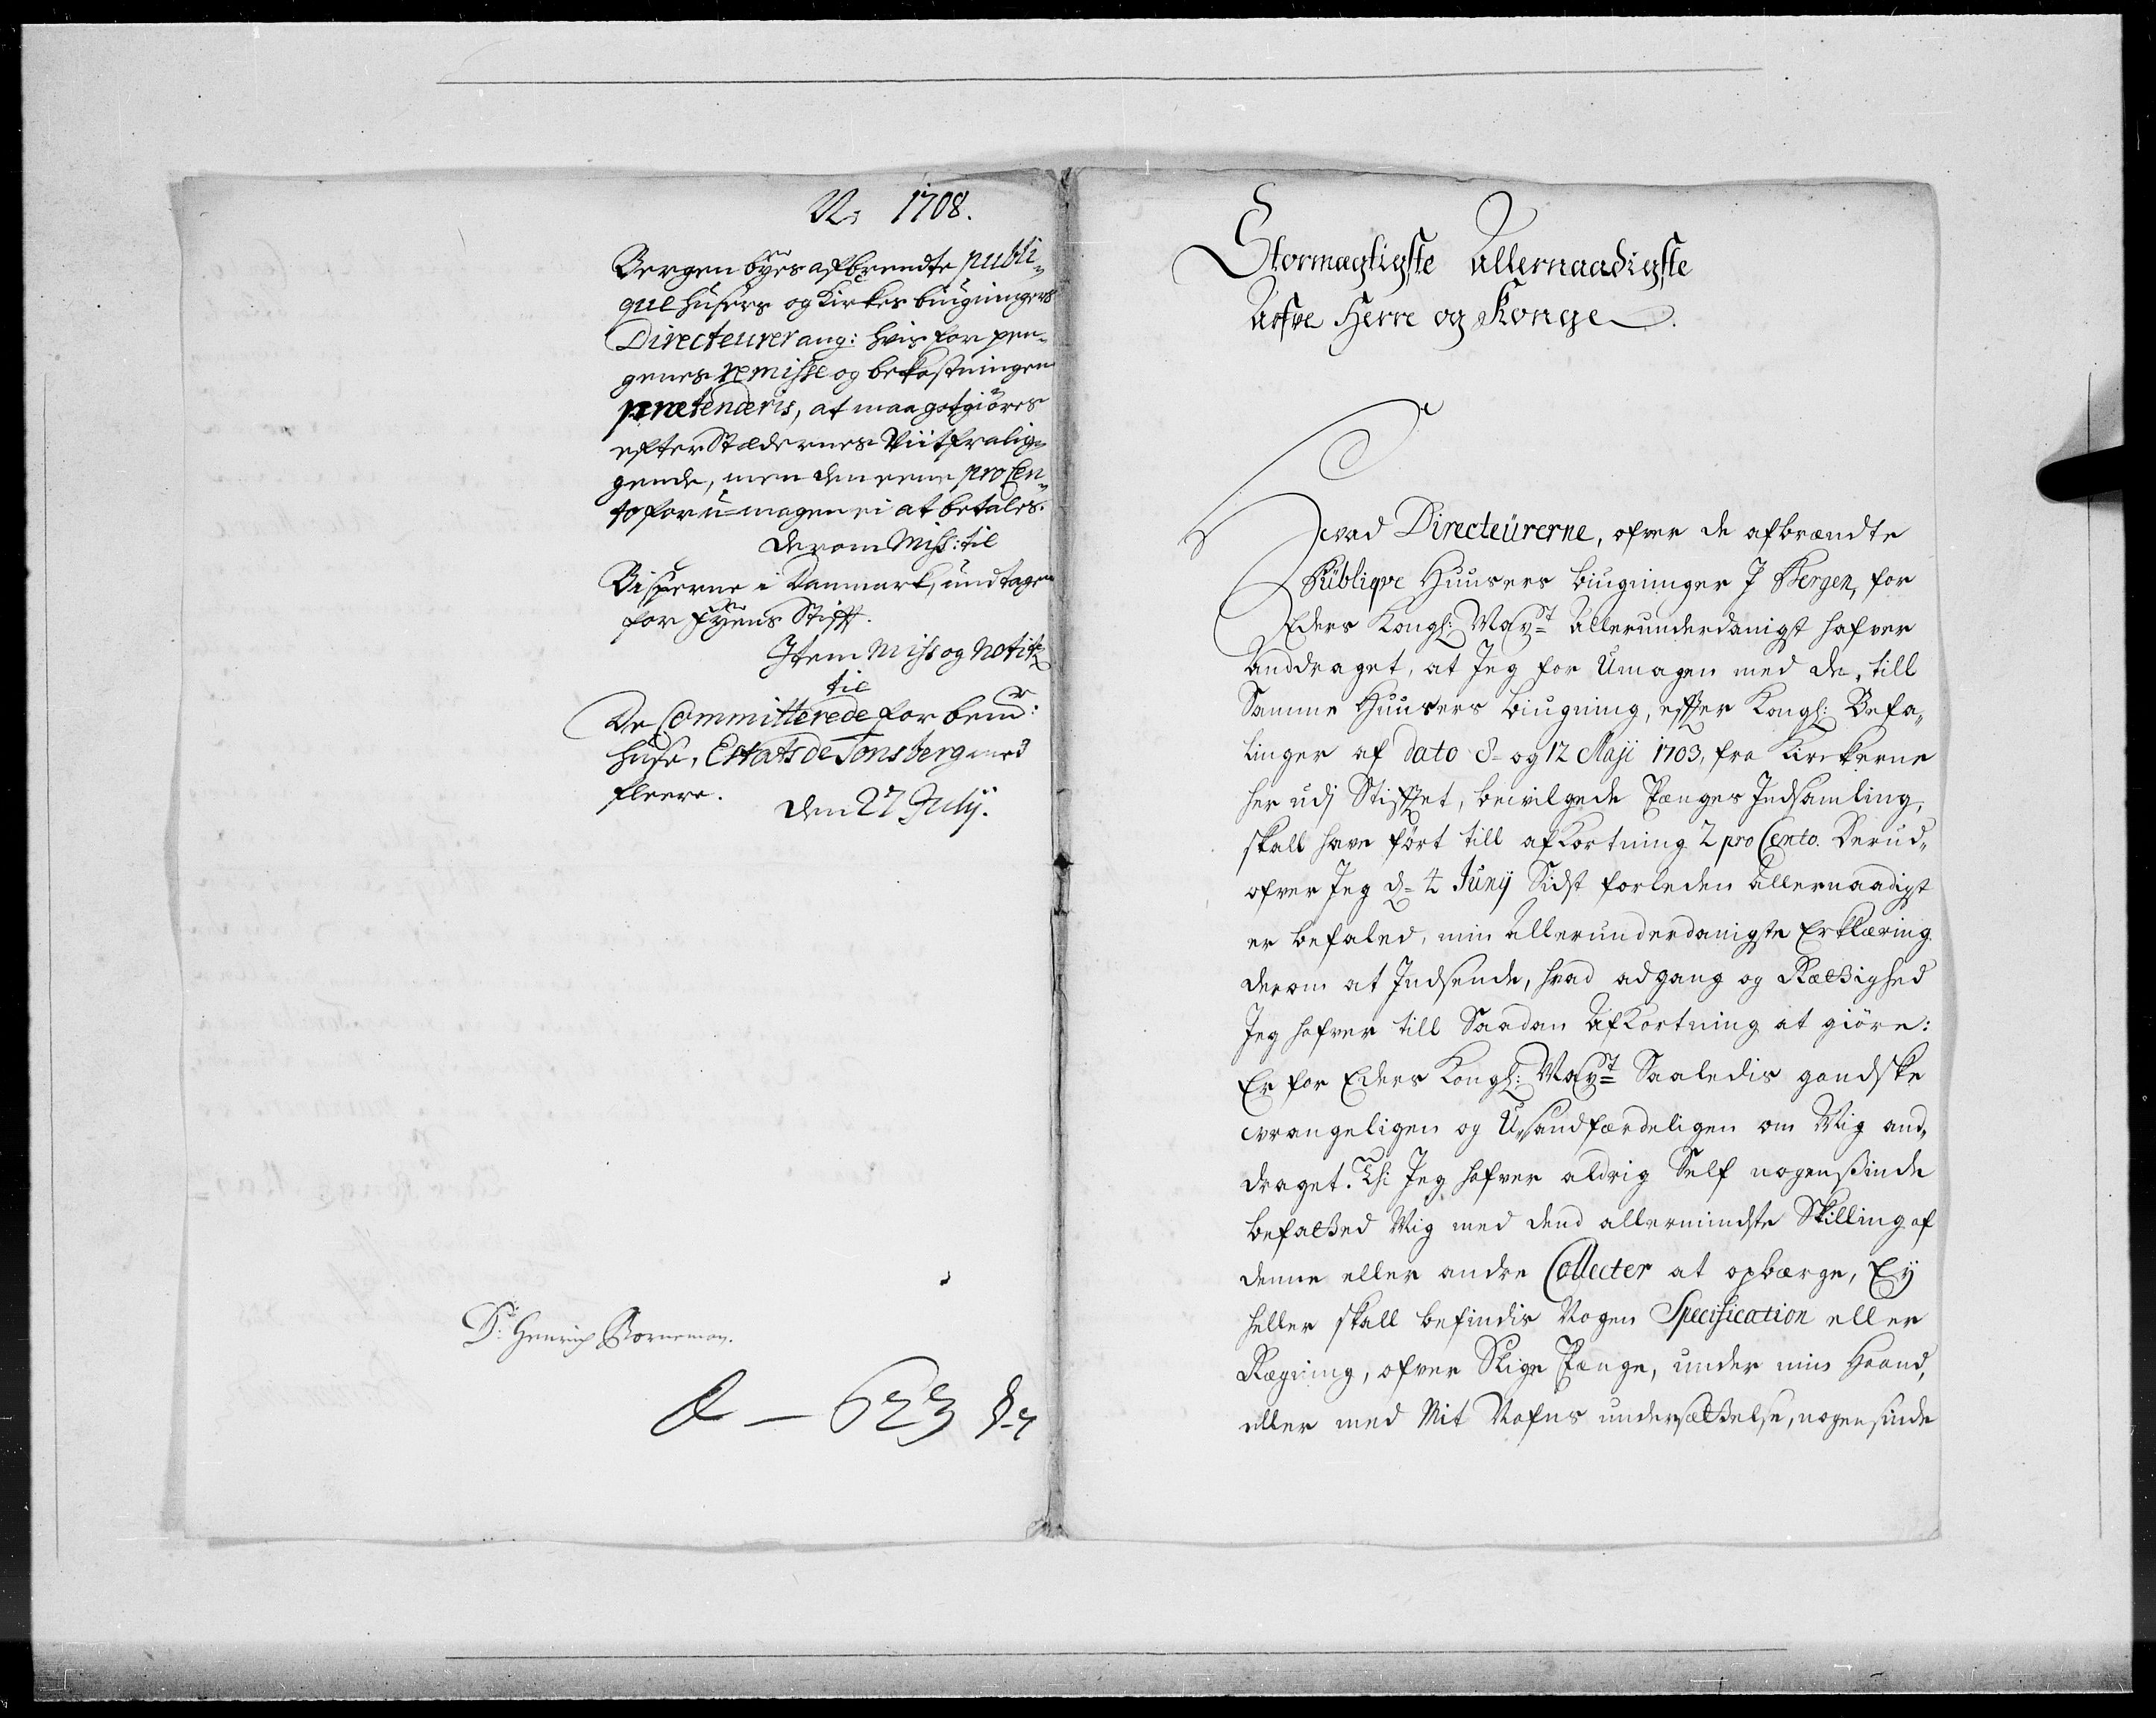 No 1708.
Bergen byes afbrendte publi„
que husers og Kirkes bügningers
Directeurer ang: hvis for pen„
genes remisse og bekostningen
prætenderis, at maa gotgiöres
efter Stædernes Viit fralig„
gende, men den eene pro Cen„
to for u-magen ei at betales.
derom Miss: til
Bisperne i Danmark, undtagen
for Fyens Stifft.
Item Miss og Notitz
til
De Committerede for bemr:
huse, Etats de Tonsberg med
fleere.
den 27 Julij.
Dr: Henrich Borneman.
623
Stormægtigste Allernaadigste
Arfve Herre og Konge.
Hvad Directeürerne, ofver de afbrændte
Püblique Huusers biugninger J Bergen, for
Eders Kongl: Mayt Allerunderdanigst hafver
Anddraget, at Jeg for Umagen med de, till
Samme Huusers biugning, effter Kongl: Befa„
linger af dato 8- og 12 Maji 1703, fra Kirckerne
her udj Stifftet, bevilgede Penges Indsamling,
skall have fört till afkortning 2 pro Cento. Derud„
ofver Jeg d= 4 Junij Sidst forleden Allernaadigst
er befaled, min Allerunderdanigste Erklæring
derom at Indsende, hvad adgang og Rættighed
Jeg hafver till Saadan Afkortning at giöre:
Er for Eders Kongl: Mayt Saaledis gandske
vrangeligen og Usandfærdeligen om Mig and„
draget. Thi Jeg hafver aldrig Self nogensinde
befatted Mig med dend allermindste Skilling af
denne eller andre Collecter at opbærge, Ey
heller skall befindis Nogen Specification eller
Regning, ofver Slige Penge, under min Haand,
eller med Mit Nafns undersættelse, nogensinde